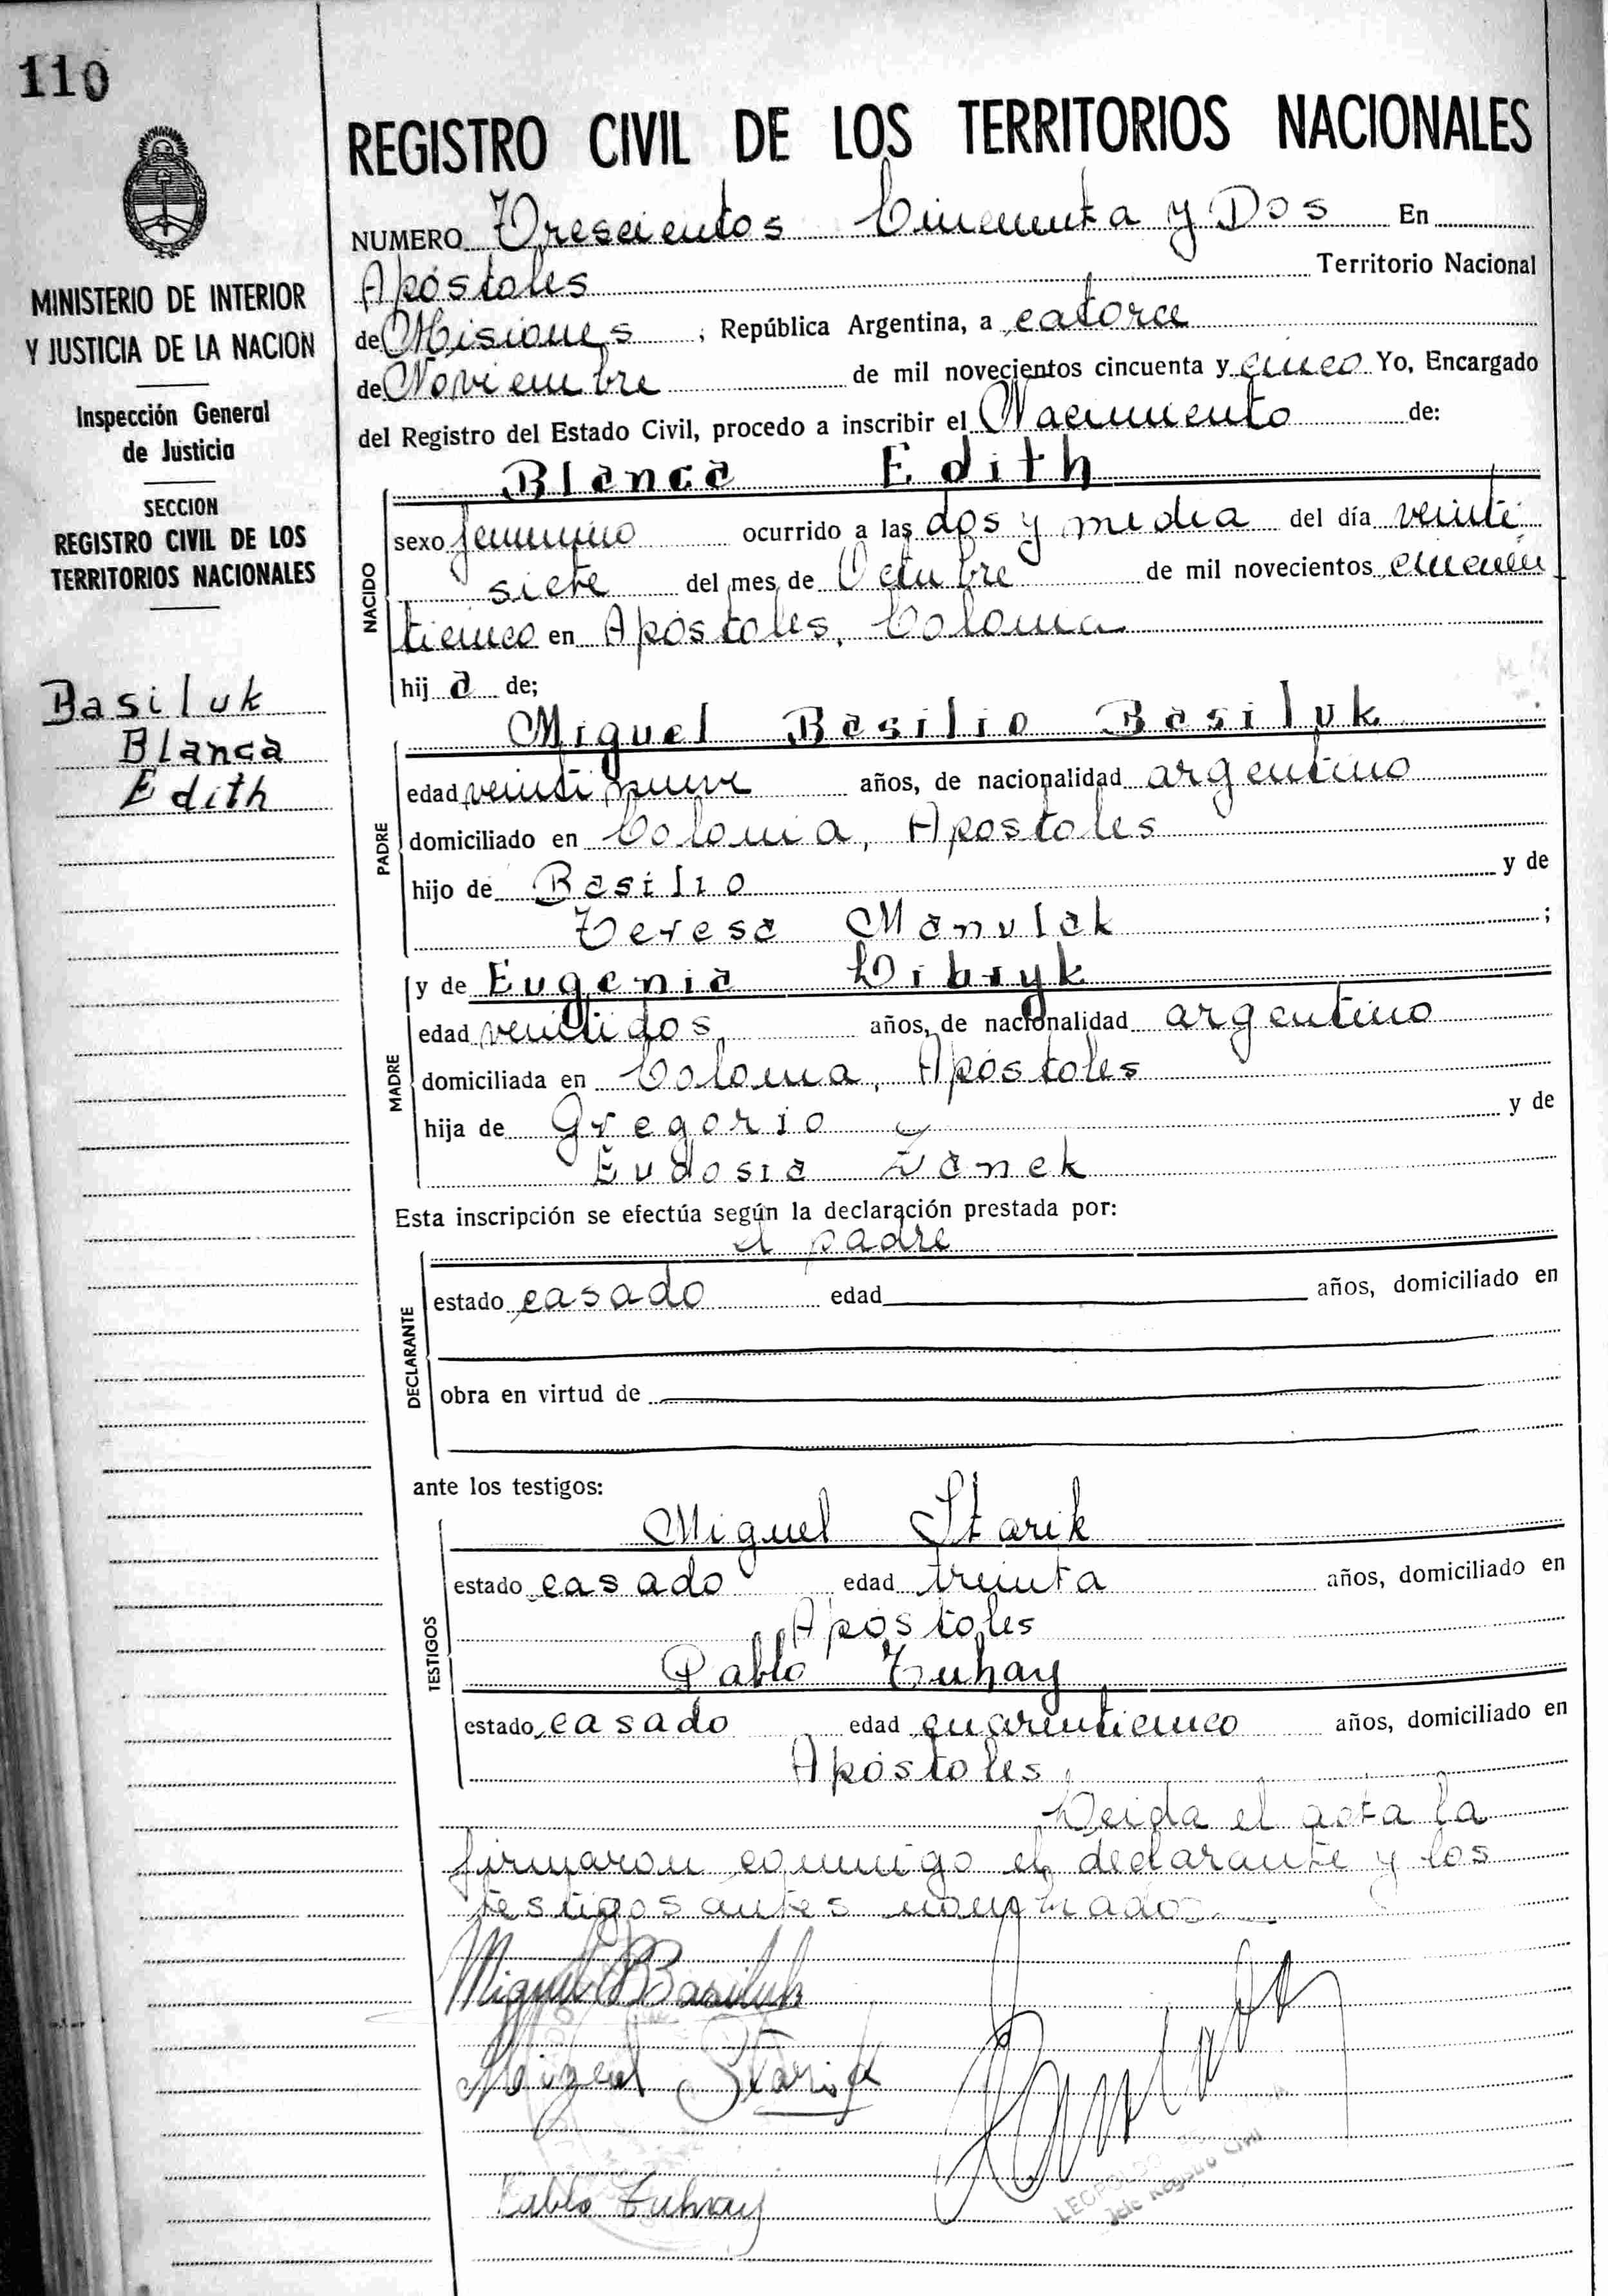 110
MINISTERIO DE INTERIOR
Y JUSTICIA DE LA NACION
Inspección General
de Justicia
SECCION
REGISTRO CIVIL DE LOS
TERRITORIOS NACIONALES
Basiluk
Blanca
Edith
REGISTRO CIVIL DE LOS TERRITORIOS NACIONALES
NUMERO Trescientos Cincuenta y Dos En
Apóstoles Territorio Nacional
de Misiones, República Argentina, a catorce
de Noviembre de mil novecientos cincuenta y cinco Yo, Encargado
del Registro del Estado Civil, procedo a inscribir el Nacimiento de:
NACIDO
Blanca Edith
sexo femenino ocurrido a las dos y media del día veinti
siete del mes de Octubre de mil novecientos cincuen
ticinco en Apóstoles, Colonia
hij a de;
PADRE
Miguel Basilio Basiluk
edad veintinueve años, de nacionalidad argentino
domiciliado en Colonia, Apostoles
hijo de Basilio y de
Teresa Manulak ;
MADRE
y de Eugenia Dibryk
edad veintidos años, de nacionalidad argentino
domiciliada en Colonia, Apóstoles
hija de Gregorio y de
Eudosia
Esta inscripción se efectúa según la declaración prestada por:
DECLARANTE
el padre
estado casado edad años, domiciliado en
obra en virtud de
ante los testigos:
TESTIGOS
Miguel Starik
estado casado edad treinta años, domiciliado en
Apóstoles
Pablo Tuhay
estado casado edad cuarenticinco años, domiciliado en
Apóstoles
Leida el acta la
firmaron conmigo el declarante y los
testigos antes nombrados.
Miguel B Basiluk
Miguel Starik
LEOPOLDO
Jefe Registro Civil
Pablo Tuhay